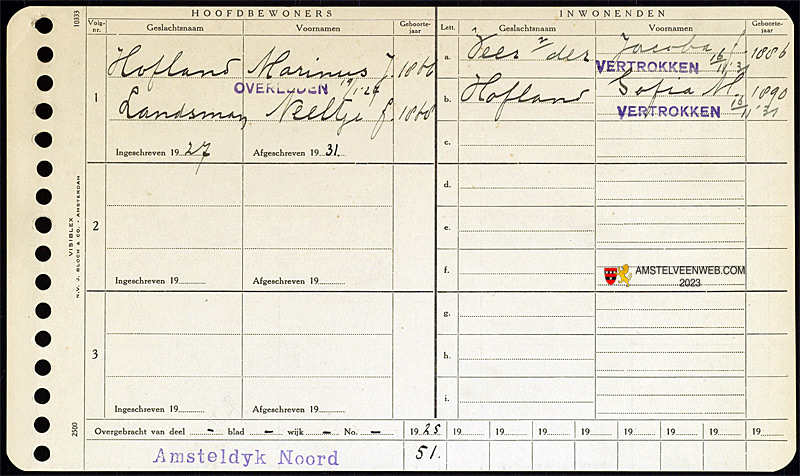 HOOFDBEWONERS
INWONENDEN
Volg-nr.
Geslachtsnaam
Voornamen
Geboorte-jaar
Lett.
Geslachtsnaam
Voornamen
Geboorte-jaar
10333
1
Hofland Marinus J. 1866
OVERLEDEN
Landsman Neeltje 1868
Ingeschreven 1927
Afgeschreven 1931.
a. Veer v der Jacoba 1886
VERTROKKEN 16/11 '31
b. Hofland Sofia M. 1890
VERTROKKEN 16/11 31
c.
d.
e.
f.
2
Ingeschreven 19
Afgeschreven 19
g.
h.
i.
3
Ingeschreven 19
Afgeschreven 19
VISIBLEX
N.V. J. BLOCH & CO. - AMSTERDAM
2500
AMSTELVEENWEB.COM
2023
Overgebracht van deel - blad - wijk - No. - 1925 19 19 19 19 19 19 19 19
Amsteldyk Noord
51.